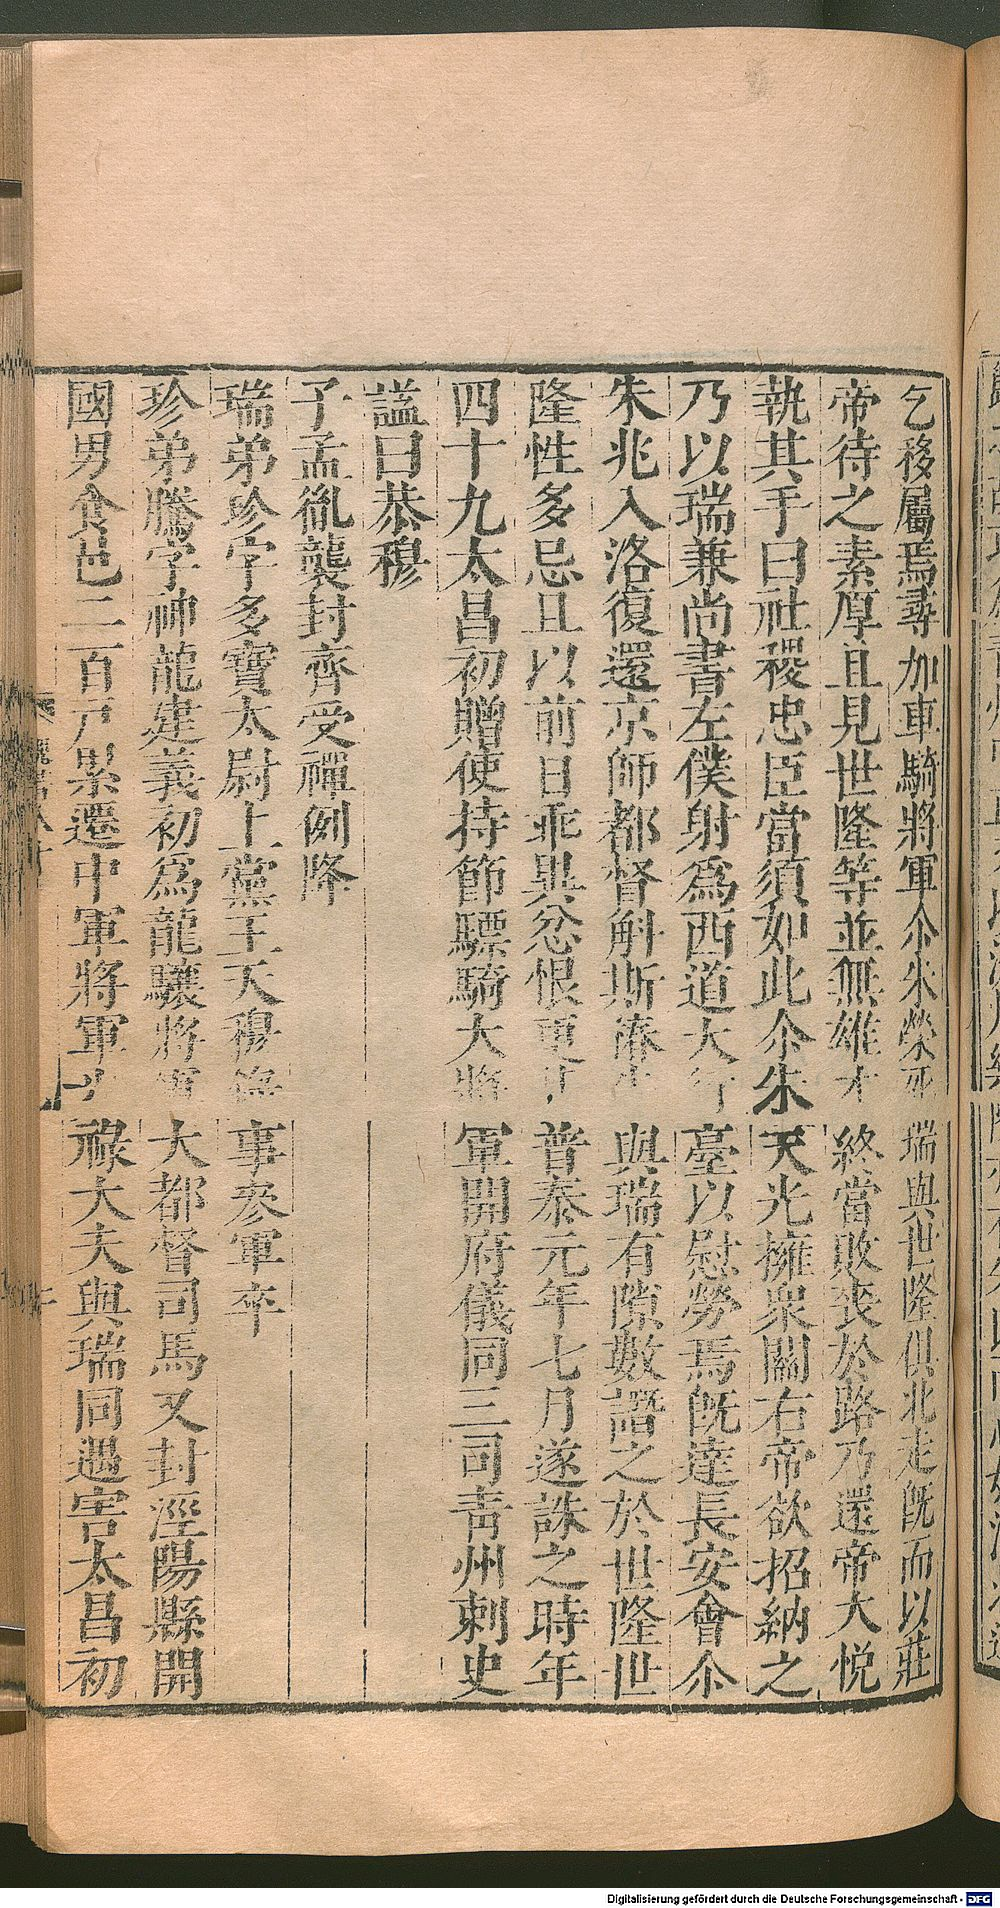 乞移屬焉尋加車騎將軍尒朱榮死瑞與世隆俱北走旣而以莊
帝待之素厚且見世隆等並無雄才終當敗喪於路乃還帝大悅
執其手曰社稷忠臣當須如此尒朱天光擁衆關右帝欲招納之
乃以瑞兼尚書左僕射爲西道大行臺以慰勞焉旣達長安會尒
朱兆入洛復還京師都督斛斯椿先與瑞有隙數譖之於世隆世
隆性多忌且以前日乖異忿恨更甚普泰元年七月遂誅之時年
四十九太昌初贈使持節驃騎大將軍開府儀同三司靑州刺史
謚曰恭穆
子孟胤襲封齊受禪例降
瑞弟珍字多寶太尉上黨王天穆錄事參軍卒
珍弟騰字神龍建義初爲龍驤將軍大都督司馬又封涇陽縣開
國男食邑二百戸累遷中軍將軍光祿大夫與瑞同遇害太昌初
Digitalisierung gefördert durch die Deutsche Forschungsgemeinschaft - DFG